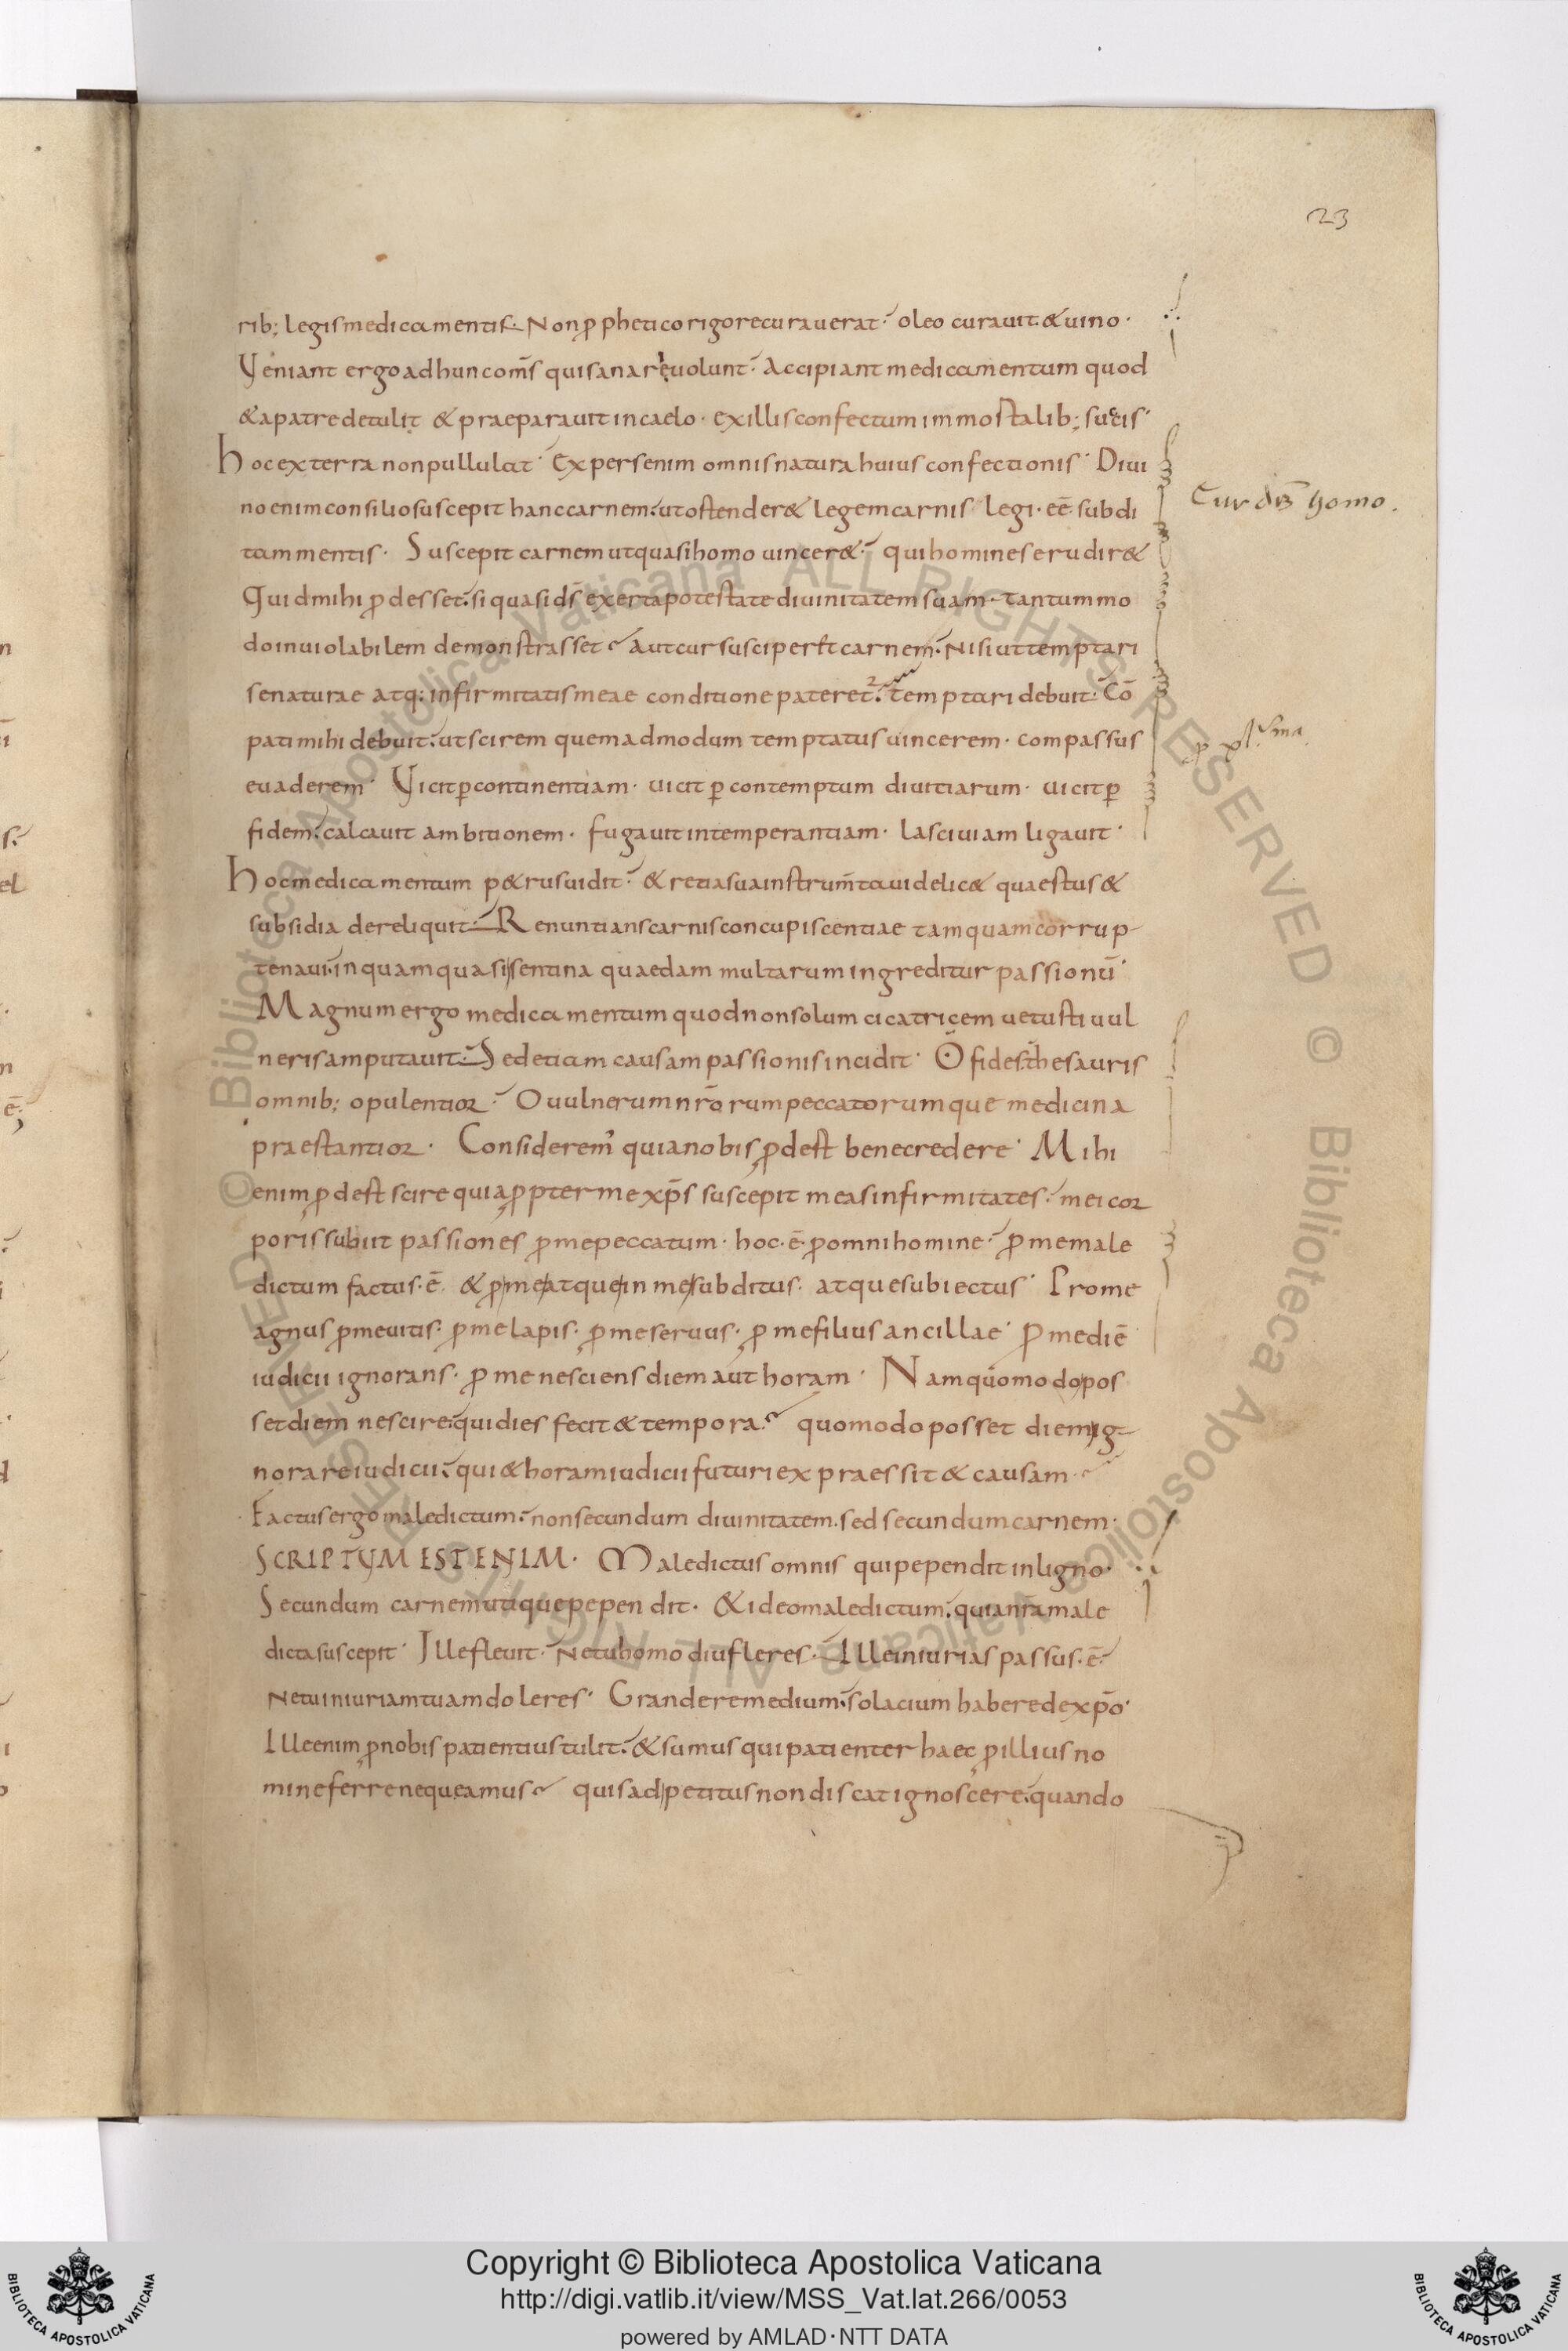 23
rib; legis medicamentis. Non p pheticorigore curauerat. oleo curauit. & uino.
Veniant ergo ad hunc oms qui sanare uolunt. Accipiant medicamentum quod
& a patre detulit & praeparauit in caelo. ex illis confectum immortalib; sucis.
hoc ex terra non pullulat. Expers enim omnis natura huius confectionis. Diui
no enim consilio suscepit hanc carnem. ut ostender& legem carnis legi. eē subdi
tam mentis. Suscepit carnem ut quasi homo uincer&. qui homines erudir&
Quid mihi p desset. si quasi ds̄ exerta potestate diuinitatem suam. tantummo
do inuiolabilem demonstrasset? aut cur susciper&t carnem. Nisi ut temptari
se naturae atq; infirmitatis meae conditione pateret2. temptari debuit. Cō
pati mihi debuit. ut scirem quemadmodum temptatus uincerem. compassus
euaderem. Vicit p continentiam. uicit p contemptum diuitiarum. uicit p
fidem. calcauit ambitionem. fugauit intemperantiam. lasciuiam ligauit.
hoc medicamentum p&rus uidit. & retia sua instrum̄ta uidelic& quaestus &
subsidia dereliquit. Renuntians carnis concupiscentiae tamquam corrup
te naui. in quam quasi sentina quaedam multarum ingreditur passionū.
Magnum ergo medicamentum quod non solum cicatricem uetusti uul
neris amputauit. Sed etiam causam passionis incidit. O fides thesauris
omnib; opulentior. O uulnerum nr̄orum peccatorumque medicina
praestantior. Considerem' quia nobis p dest bene credere. Mihi
enim p dest scire quia p pter me xp̄s suscepit meas infirmitates. mei cor
poris subiit passiones p me peccatum. hoc. ē. p omni homine. p me male
dictum factus. ē. & p me atque in me subditus. atque subiectus. Pro me
agnus p me uitis. p me lapis. p me seruus. p me filius ancillae. P me diē
iudicii ignorans. p me nesciens diem aut horam. Nam quomodo pos
set diem nescire. qui dies fecit & tempora? quomodo posset diem ig
norare iudicii. qui & horam iudicii futuri expraessit & causam.
Factus ergo maledictum. non secundum diuinitatem. sed secundum carnem.
SCRIPTVM EST ENIM. Maledictus omnis qui pependit in ligno.
Secundum carnem utique pependit. & ideo maledictum. quia nr̄a male
dicta suscepit. Ille fleuit. Ne tu homo diu fleres. Ille iniurias passus. ē.
Ne tu iniuriam tuam doleres. Grande remedium. solacium habere de xp̄o.
Ille enim p nobis patientius tulit. & sumus qui patienter haec p illius no
mine ferre nequeamus? quis adpetitus non discat ignoscere. quando
Cur ds̄ homo.
© Biblioteca Apostolica Vaticana ALL RIGHTS RESERVED
Copyright © Biblioteca Apostolica Vaticana
http://digi.vatlib.it/view/MSS_Vat.lat.266/0053
powered by AMLAD·NTT DATA
BIBLIOTECA APOSTOLICA VATICANA
BIBLIOTECA APOSTOLICA VATICANA